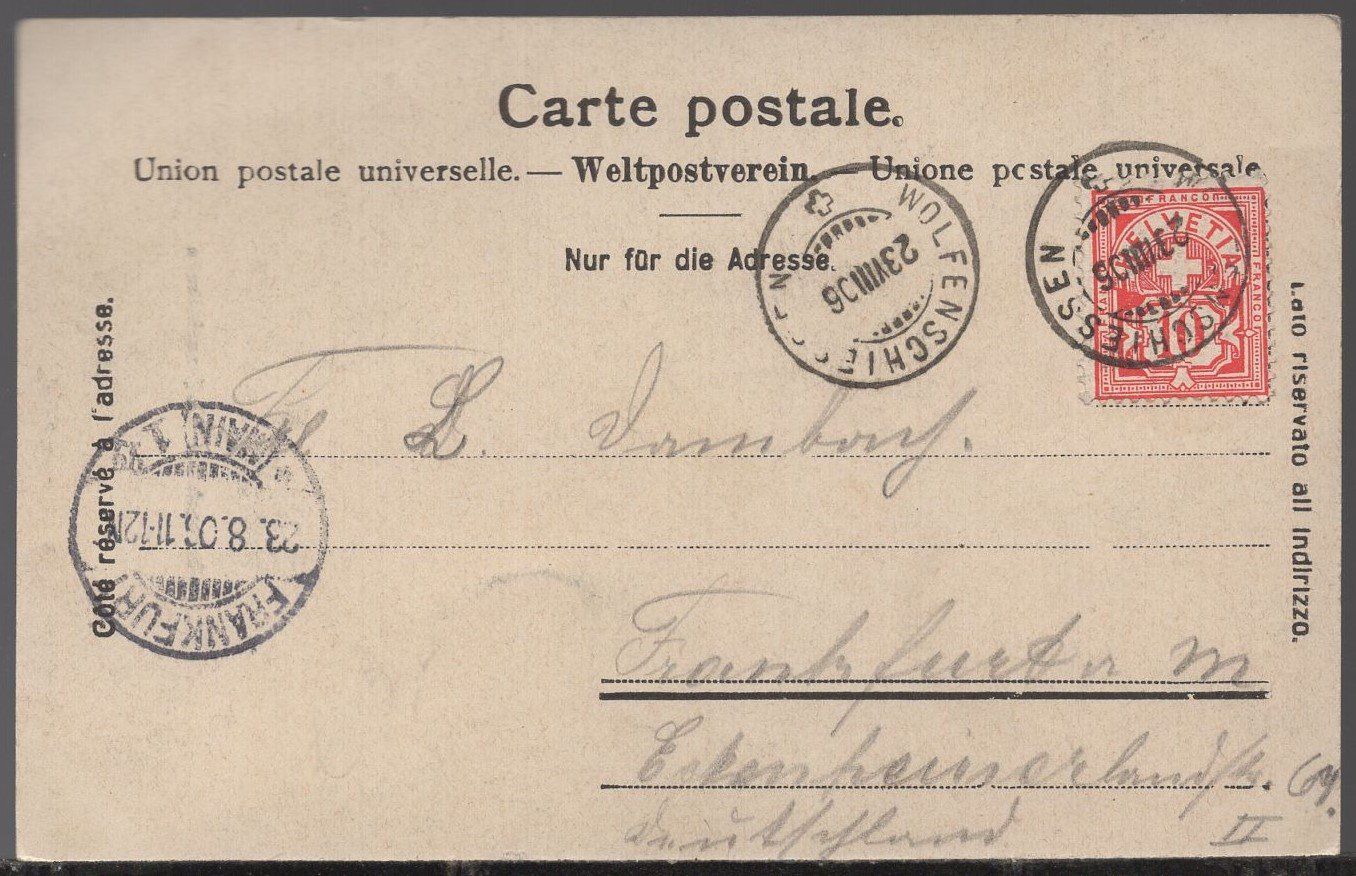 Carte postale.
Union postale universelle. — Weltpostverein. — Unione postale universale
Nur für die Adresse.
Côté réservé à l'adresse.
Lato riservato all indirizzo.
WOLFENSCHIESSEN
23 VIII 06
WOLFENSCHIESSEN
23 VIII 06
FRANCO
HELVETIA
FRANCO
10
FRANKFURT MAIN 1
23. 8. 06. 11-12N
L. Dambach.
Frankfurt a M
Eckenheimerlandstr. 64.
Deutschland II